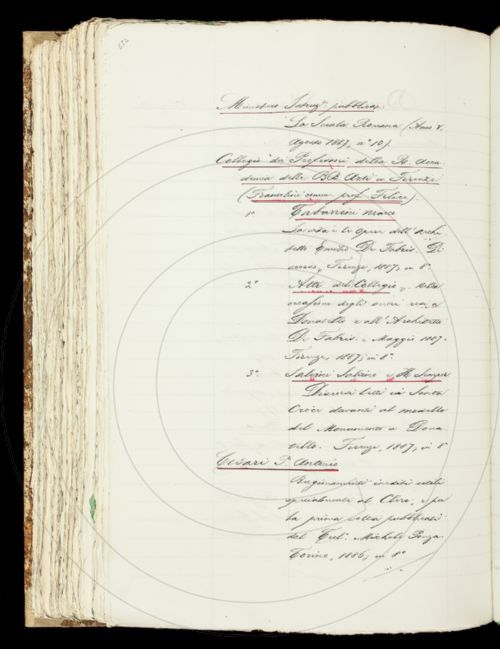 Ministero Istruz. pubblica.
La Scuola Romana (Anno V.
Agosto 1887, n. 10).
Collegio dei Professori della R. Acca
demia delle BB. Arti in Firenze
(Franceschini comm. prof. Felice)
1°
Tabarrini Marco
La vita e le opere dell'Archi
tetto Emilio De Fabris. Di
scorso, Firenze, 1887, in 8°
2° Atti del Collegio, nella
occasione degli onori resi a
Donatello e all'Architetto
De Fabris. Maggio 1887.
Firenze, 1887, in 8°
3°
Discorsi letti in Santa
Croce davanti al modello
del Monumento a Dona
tello. Firenze, 1887, in 8°
Cesari P. Antonio
Ragionamenti inediti utili
specialmente al Clero, e per
la prima volta pubblicati
dal Michele Ponza
Torino, 1886, in 8°